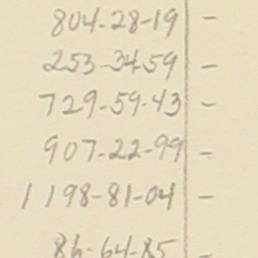 804-28-19 -
253-34-59 -
729-59-43 -
907-22-99 -
1198-81-04 -
86-64-85 -